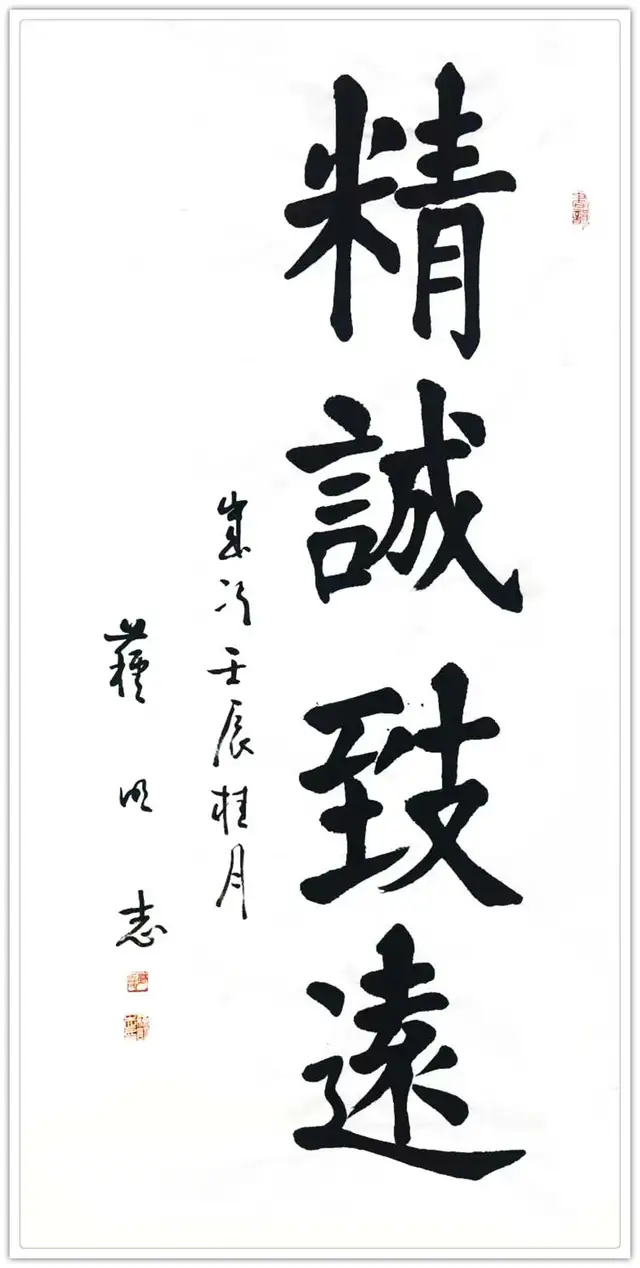 精誠致遠
歲次壬辰桂月
蘇明志